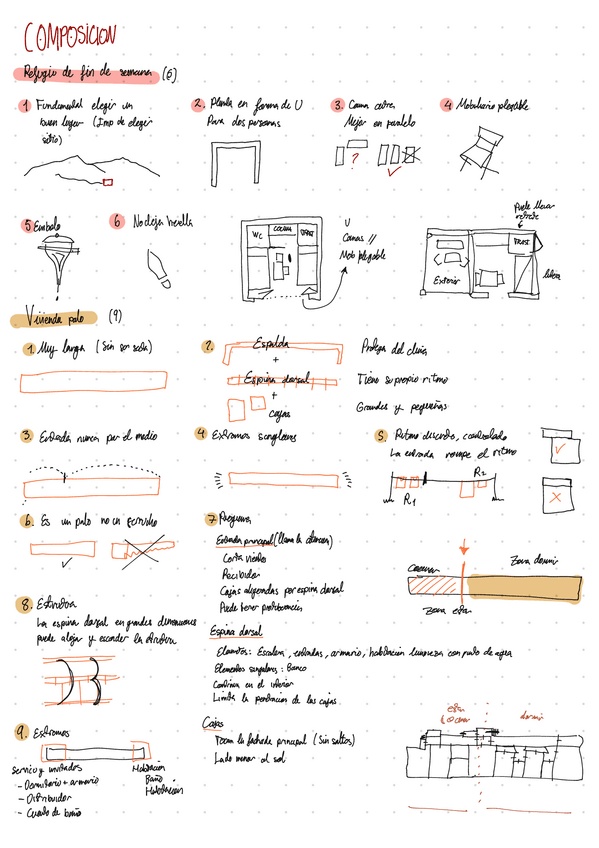 COMPOSICION
Refugio de fin de semana (6)
1 Fundamental elegir un
buen lugar (Imp de elegir
sitio)
2. Planta en forma de U
Para dos personas
3. Cama
Mejor en paralelo
?
4 Mobiliario plegable
5 Embolo
6 No deja huella
WC
COCINA
U
Camas //
Mob plegable
Puede llevar
Exterior
Vivienda palo (9)
1. Muy larga (Sin ser sola)
2. Espalda
+
Espina dorsal
+
cajas
Protege del clima
Tiene su propio ritmo
Grandes y pequeñas
3. Entrada nunca por el medio
4 Extremos singulares
5 Ritmo discreto, controlado
La entrada rompe el ritmo
R1
R2
6. Es un palo no un
7 Programa
Entrada principal (llama la atención)
Corta viento
Recibidor
Cajas agrupadas por espina dorsal
Puede tener protuberancias
Zona dormir
Zona estar
8. Estructura
La espina dorsal en grandes dimensiones
puede alojar y esconder la estructura
Espina dorsal
Elementos: Escalera, entradas, armario, habitación con punto de agua
Elementos singulares: Banco
Continua en el interior
Limita la penetración de las cajas
Cajas
Tocan la fachada principal (Sin saltos)
Lado menor al sol
9. Extremos
Servicio y invitados
- Dormitorio + armario
- Distribuidor
- Cuarto de baño
Habitación
Baño
Habitación
estar
cocinar
dormir